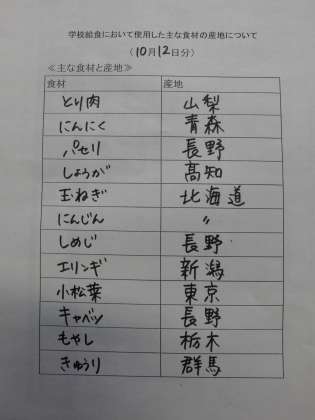 学校給食において使用した主な食材の産地について
（10月12日分）
≪主な食材と産地≫
食材 産地
とり肉 山梨
にんにく 青森
パセリ 長野
しょうが 高知
玉ねぎ 北海道
にんじん 〃
しめじ 長野
エリンギ 新潟
小松葉 東京
キャベツ 長野
もやし 栃木
きゅうり 群馬